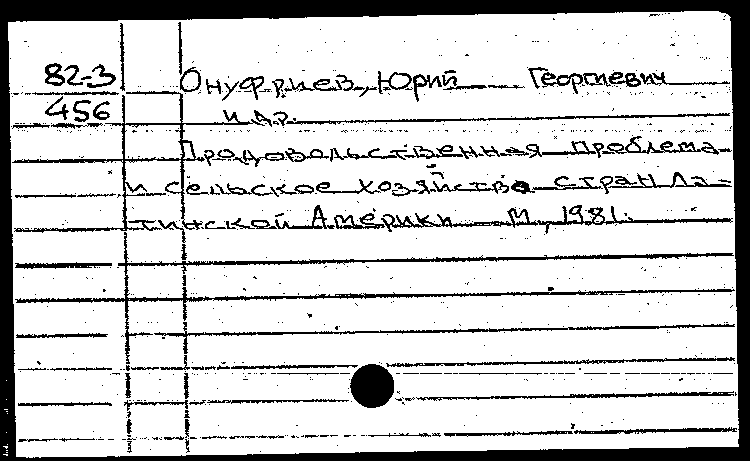 82-3 Онуфриев, Юрий Георгиевич
456 и др.
Продовольственная проблема
и сельское хозяйство стран Ла-
тинской Америки М., 1981.